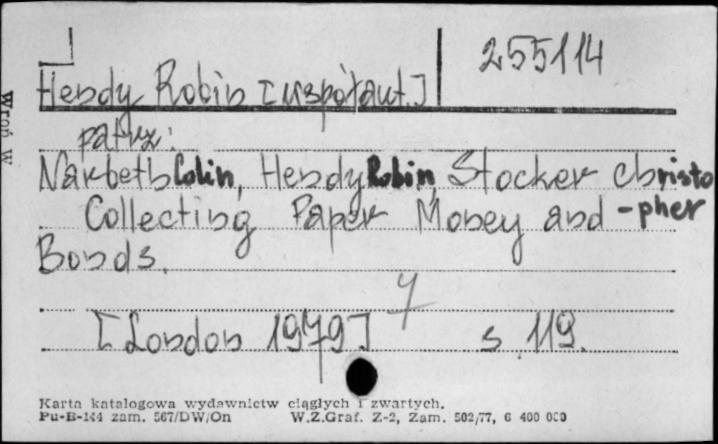 255114
Hendy Robin [współaut.]
patrz:
Narbeth Colin, Hendy Robin, Stocker Christo
Collecting Paper Money and -pher
Bonds.
[London 1979] s. 119.
Karta katalogowa wydawnictw ciągłych i zwartych.
Pu-B-144 zam. 567/DW/On W.Z.Graf. Z-2, Zam. 502/77, 6 400 000